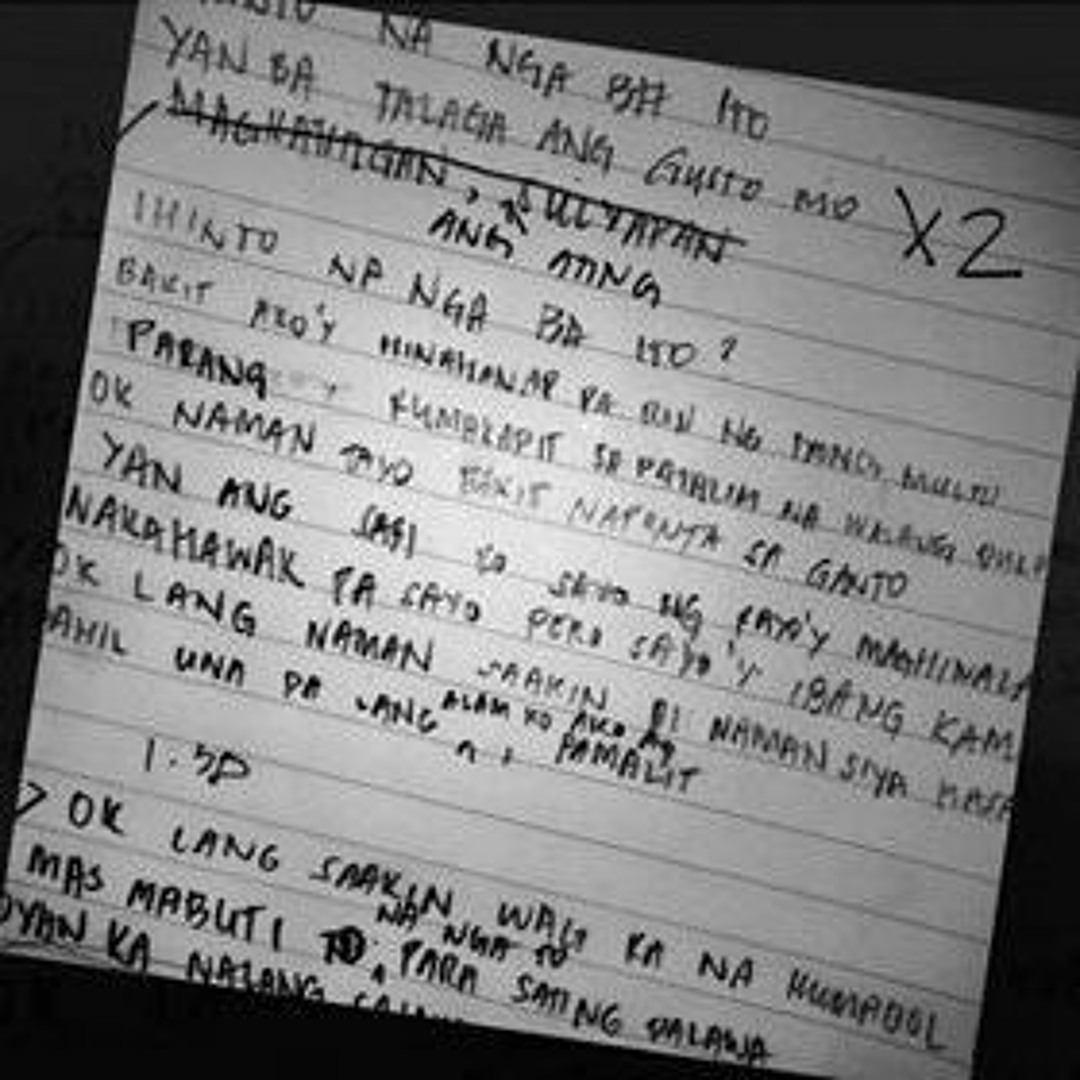 NA NGA BA ITO
YAN BA TALAGA ANG GUSTO MO X2
MAGKAHIGAN, SULYAPAN
ANG ATING
IHINTO NA NGA BA ITO?
BAKIT AKO'Y HINAHANAP PA RIN NG IYONG MULTO
PARANG KUMAKAPIT SA PATALIM NA WALANG
OK NAMAN TAYO BAKIT NAPUNTA SA GANTO
YAN ANG SABI KO SAYO NG TAYO'Y MAGHIWALA
NAKAHAWAK PA SAYO PERO SAYO'Y IBANG KAM
OK LANG NAMAN SAAKIN DI NAMAN SIYA
ALAM KO AKO AY
AHIL UNA PA LANG PAMALIT
OK LANG SAAKIN WAG KA NA HUMABOL
NA NGA TO
MAS MABUTI TO, PARA SATING DALAWA
DYAN KA NALANG